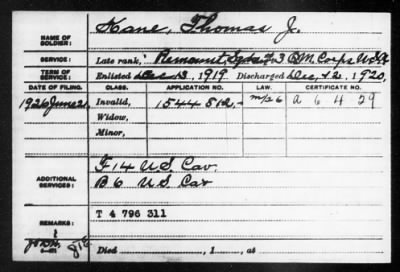 NAME OF SOLDIER: Kane, Thomas J.
SERVICE: Late rank, Remount, #3 Q.M. Corps U.S.A.
TERM OF SERVICE: Enlisted Dec. 13, 1919, Discharged Dec. 12, 1920.
DATE OF FILING. CLASS. APPLICATION NO. LAW. CERTIFICATE NO.
1926 June 21 Invalid, 1544512 A 6 4 29
Widow,
Minor,
ADDITIONAL SERVICES: F 14 U.S. Cav.
B 6 U.S. Cav
REMARKS: T 4 796 311
Died , 1 , at